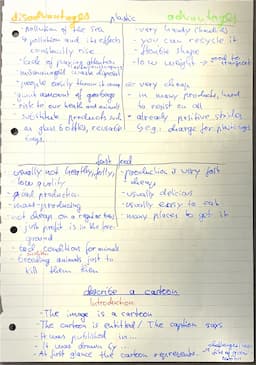 disadvantages plastic advantages
- pollution of the sea
- pollution and its effects
constantly rise
- lack of paying attention
- mismanaged waste disposal
- people easily throw it away
- giant amount of garbage
- risk to our health and animals
- substitute products such
as glass bottles,
bags.
- very handy
- you can recycle it
- flexible shape
- low weight → good to transport
- very cheap
- in many products, hard
to resist on all
- already positive strides
e.g. charge for plastic bags
fast food
- usually not healthy,
low quality
- production
- mass-producing
- not cheap on a regular
- just profit is in the fore-
ground
- conditions for animals
breeding animals just to
kill them then
- production is very fast
- cheap
- usually delicious
- usually easy to eat
- many places to get it
describe a cartoon
Introduction
- The image is a cartoon
- The cartoon is entitled / The caption says
- It was published in ...
- It was drawn by ...
- At first glance the cartoon represents